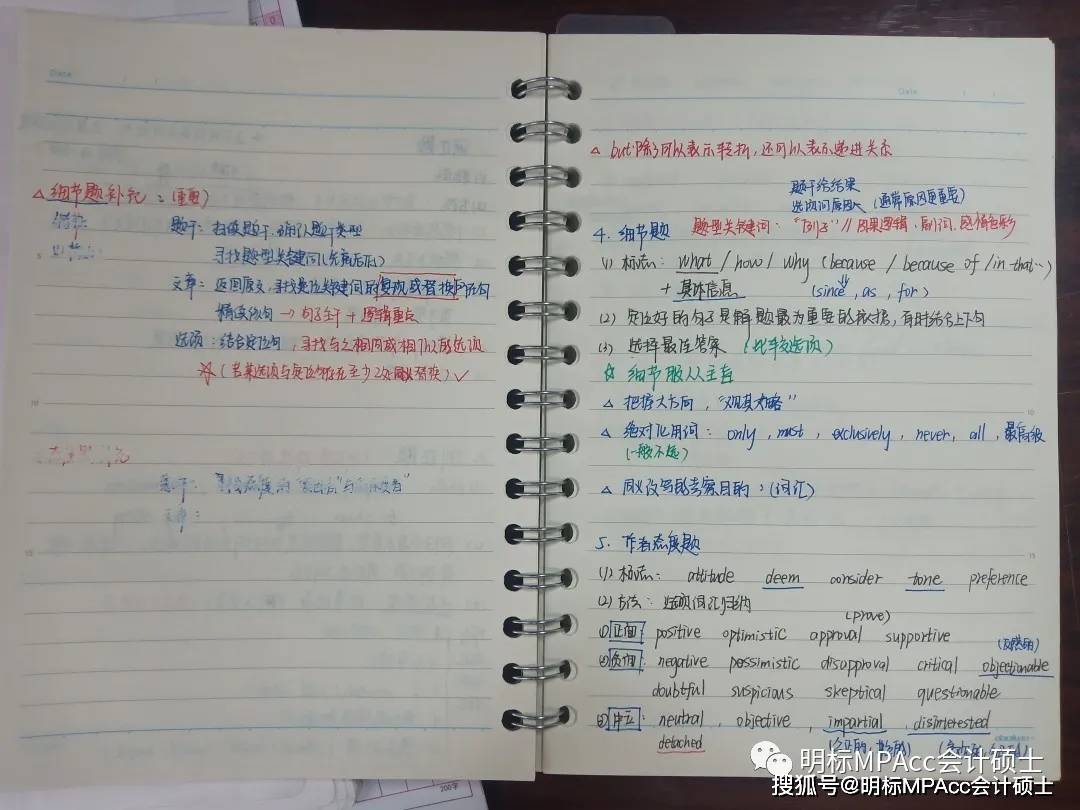 Date
△ 细节题补充：(重要)
题干：扫读题干，确认题干类型
寻找题型关键词(先前后下)
文章：返回原文，寻找定位关键词的复现或替换所在句
精读该句 → 句子主干 + 逻辑重点
选项：结合定位句，寻找与之相同或相似的选项
☆ (若某选项与定位句存在至少2处同义替换) ✓
题干：
文章：
Date
△ but 除了可以表示转折，还可以表示递进关系
题干给结果
选项问原因 (通常原因更重要)
4. 细节题 题型关键词：“问法” // 因果逻辑、副词、感情色彩
(1) 标志：what / how / why (because / because of / in that…)
+ 具体信息 (since, as, for)
(2) 定位好的句子是解题最为重要的依据，有时结合上下句
(3) 选择最佳答案 (比较选项)
☆ 细节服从主旨
△ 把握大方向，“观其大略”
△ 绝对化用词：only, must, exclusively, never, all, 最高级
(一般不选)
△ 同义改写的考察目的：(词汇)
5. 作者态度题
(1) 标志：attitude deem consider tone preference
(2) 方法：选项词汇归纳
(prove)
① 正面 positive optimistic approval supportive
② 负面 negative pessimistic disapproval critical objectionable
doubtful suspicious skeptical questionable
③ 中立 neutral, objective, impartial, disinterested
detached (公正的，
200字
明标MPAcc会计硕士
搜狐号@明标MPAcc会计硕士